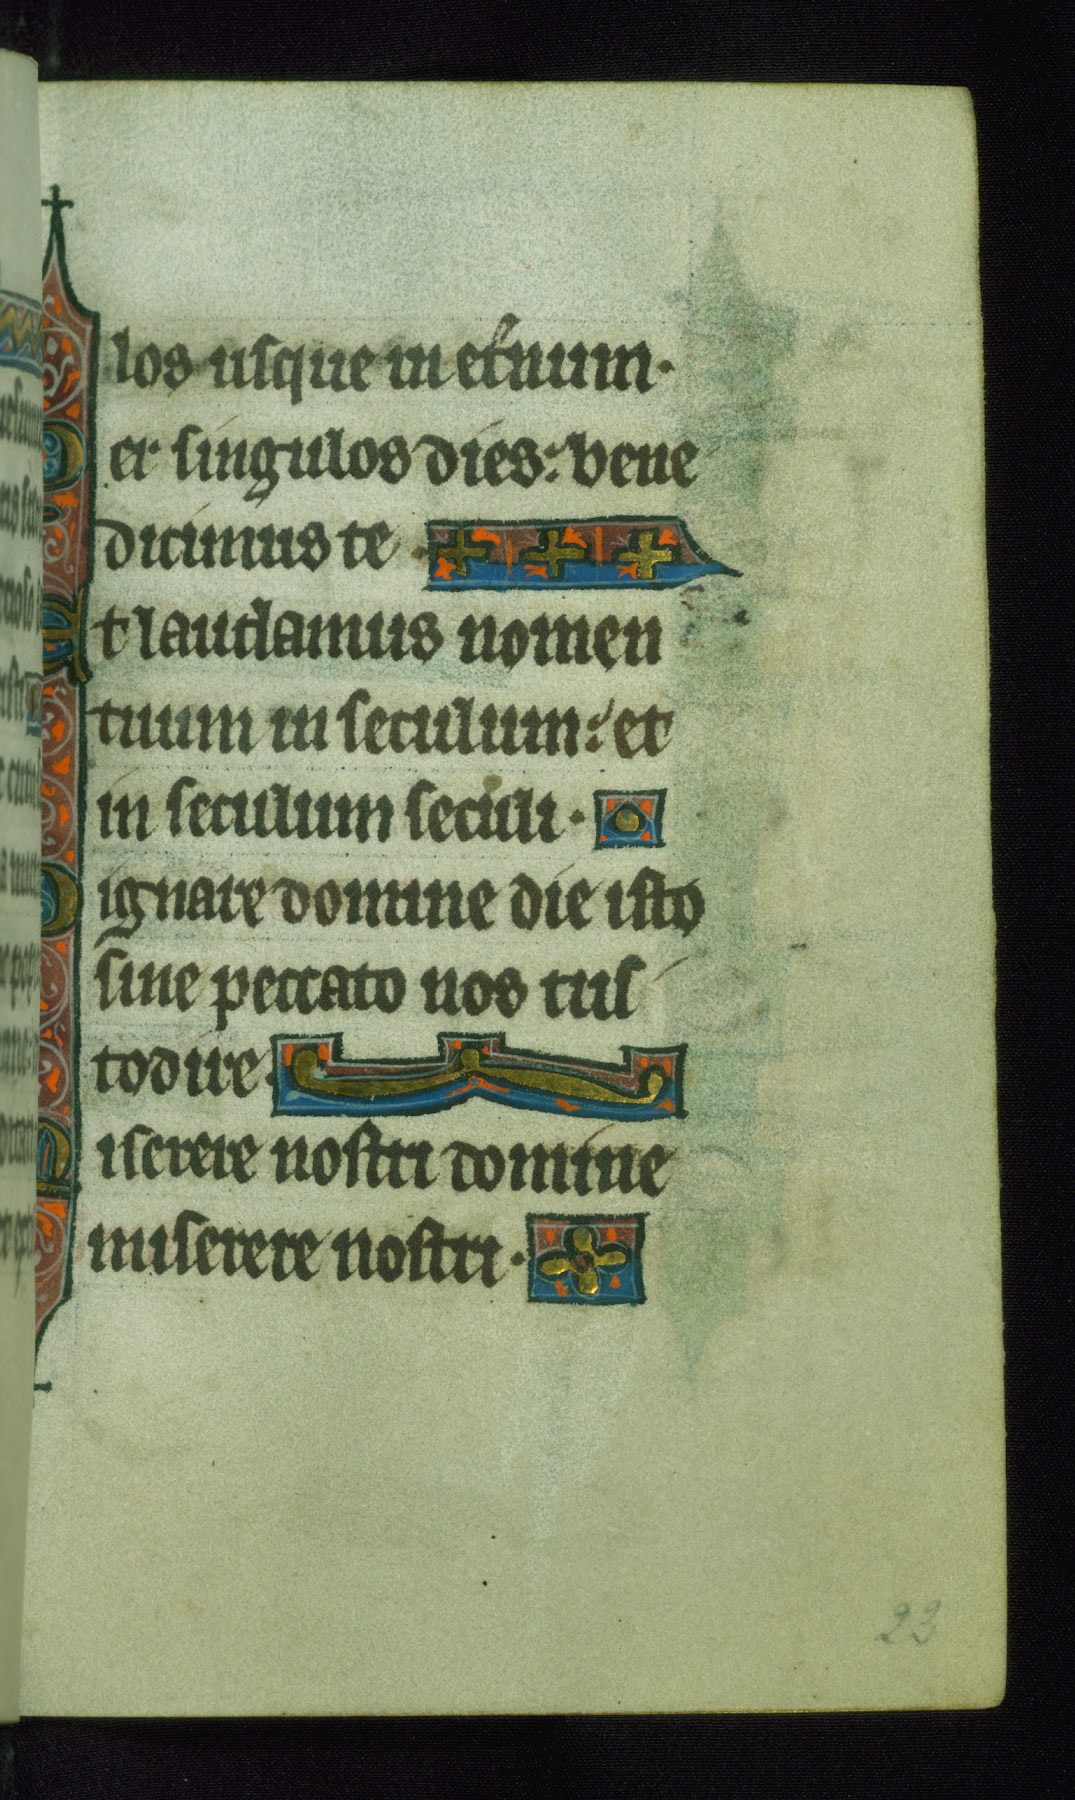 los usque in et̾num·
Per singulos dies: bene
dicimus te·
Et laudamus nomen
tuum in seculum: et
in seculum seculi·
Dignare domine die isto
sine peccato nos cus
todire·
Miserere nostri domine
miserere nostri·
23